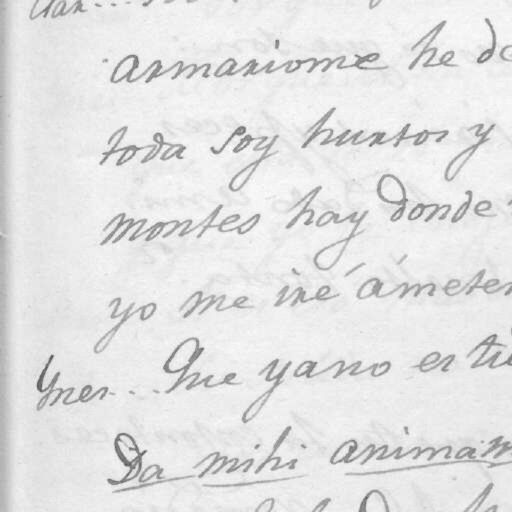 armariome he de
toda soy hurtos y
montes hay donde
yo me iré ámeter
Ynes... Que yano es tu
Da mihi animam